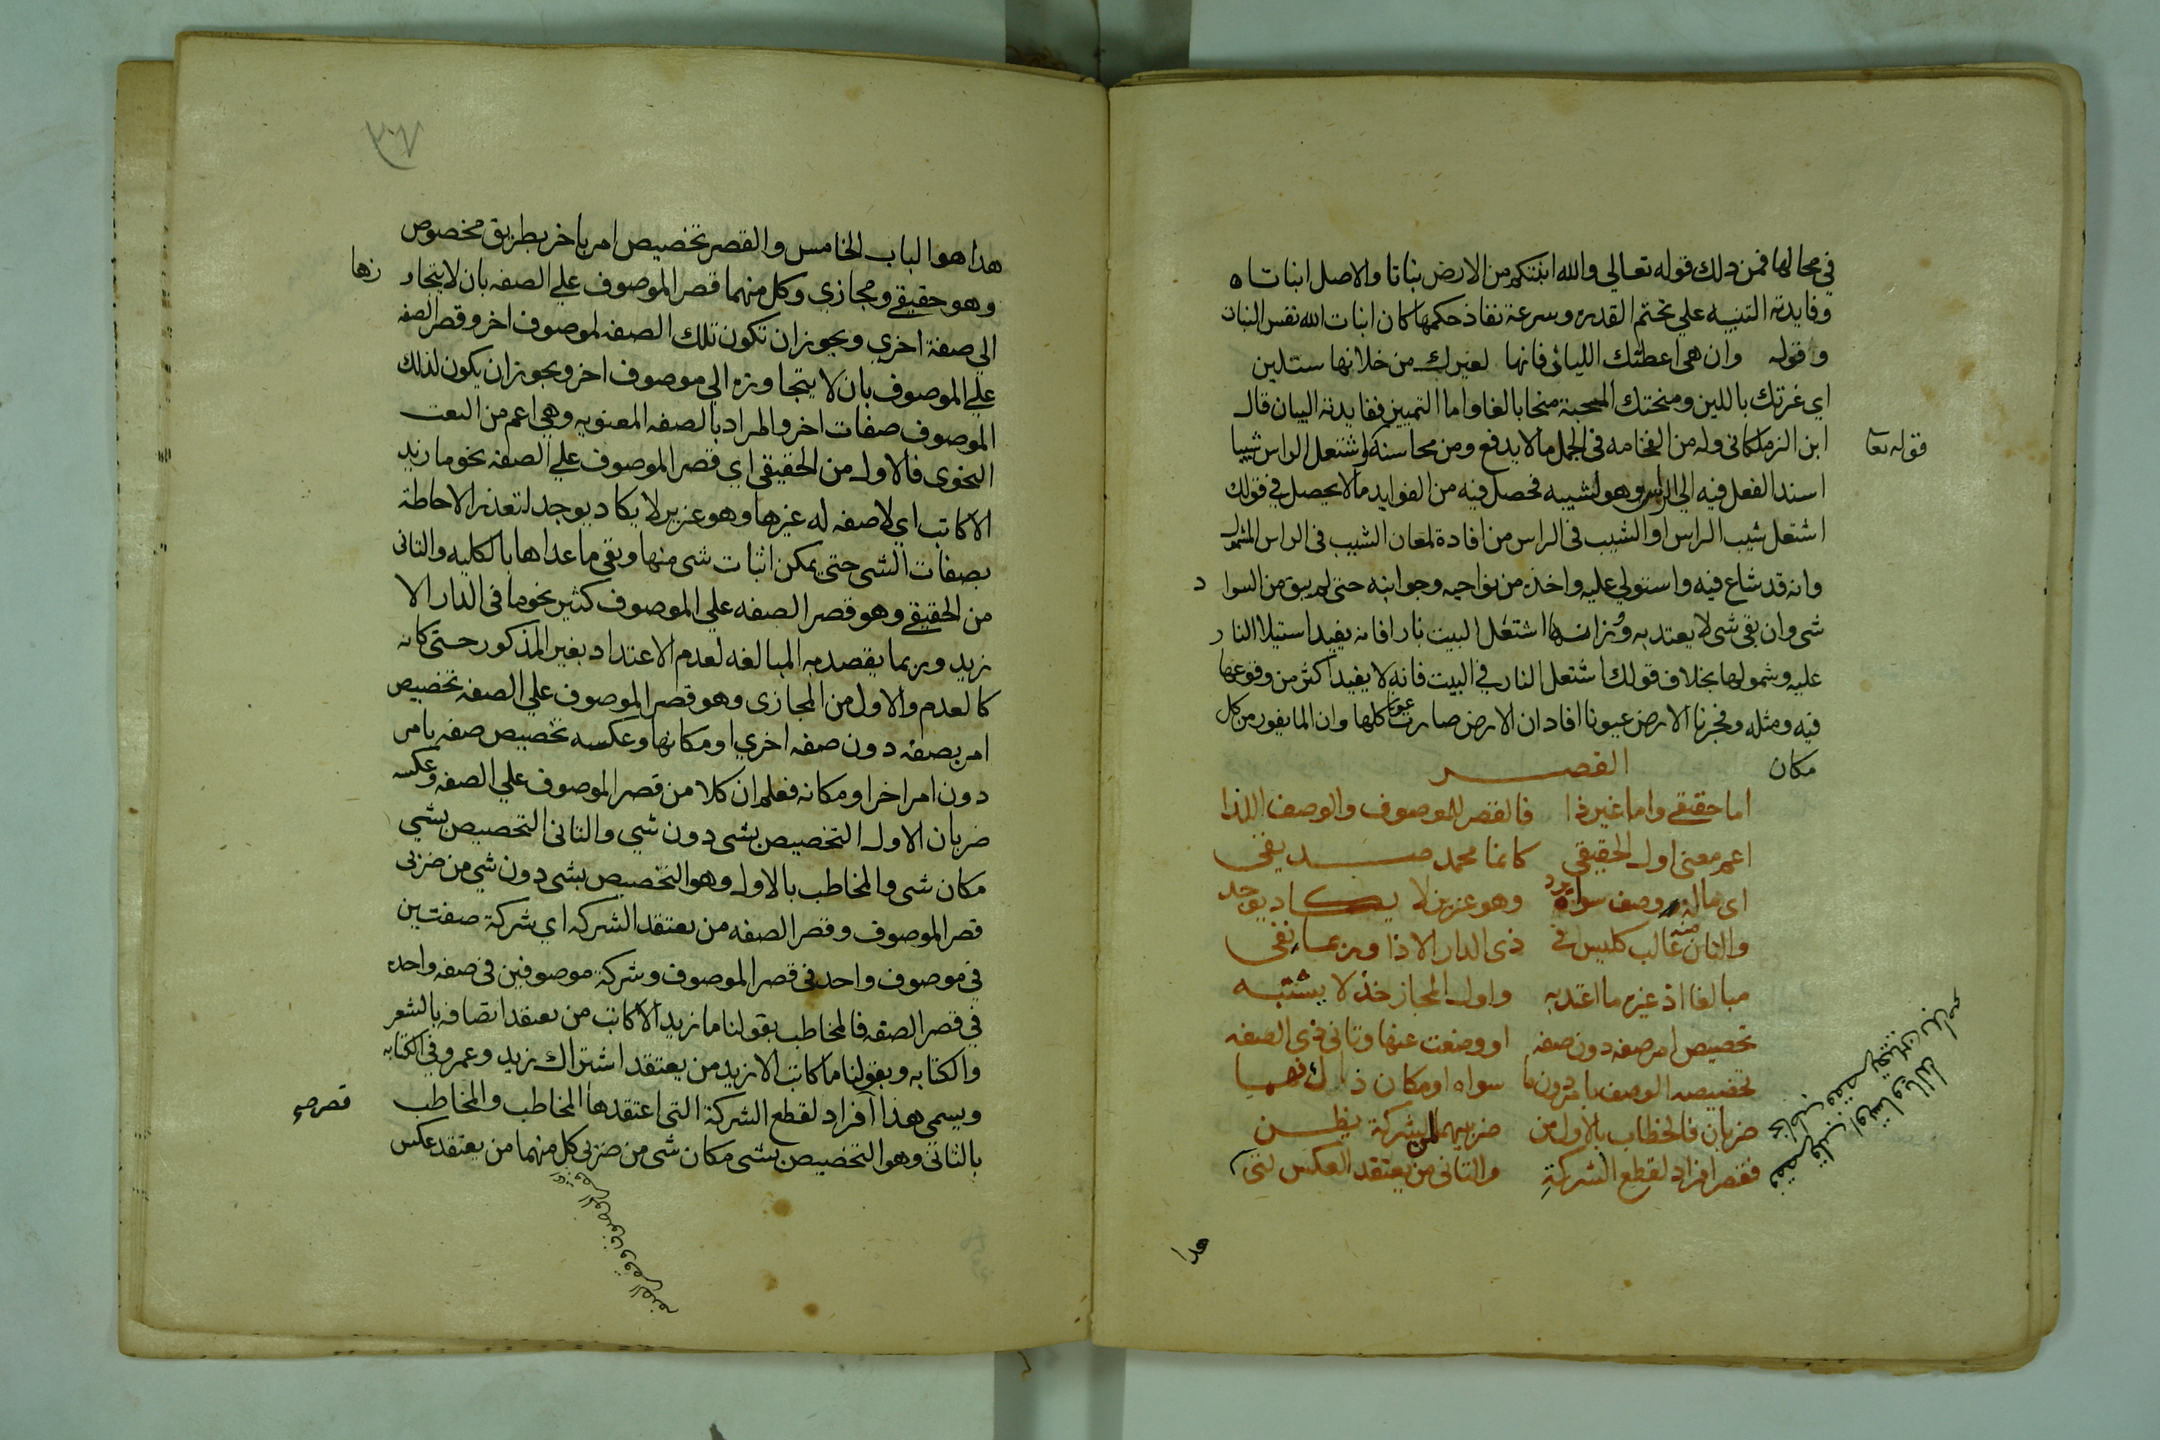 في محالها فمن ذلك قوله تعالي والله انبتكم من الارض نباتا والاصل انباتا
وفايدته التنبيه علي تحتم القدره وسرعة نفاذ حكمها كان انبات الله نفس النبات
وقوله وان هي اعطتك الليان فانها لغيرك من خلانها ستلين
اي غرتك باللين ومنحتك المحبة منحا بالغا واما التمييز ففايدته البيان قال
ابن الزملكاني وله من الفخامه في الجمل ما لا يدفع ومن محاسنه واشتعل الراس شيبا
قوله تعا
اسند الفعل فيه الي الراس وهو لشيبه فحصل فيه من الفوايد ما لا يحصل في قولك
اشتعل شيب الراس او الشيب في الراس من افادة لمعان الشيب في الراس المشتعل
وانه قد شاع فيه واستولي عليه واخذه من نواحيه وجوانبه حتي لم يبق من السواد
شي وان بقي شي لا يعتد به وزانها اشتعل البيت نارا فانه يفيد استيلا النار
عليه وشمولها بخلاف قولك اشتعل النار في البيت فانه لا يفيد اكثر من وقوعها
فيه ومثله وفجرنا الارض عيونا افاد ان الارض صارت عيونا كلها وان الما يفور من كل
مكان
القصر
اما حقيقي واما غير ذا فالقصر للموصوف والوصف اللذا
اعم معني اول الحقيقي كانما محمد صديقي
اي ماله وصف سواه وهو عزيز لا يكاد يوجد
والثان منه غالب كليس في ذي الدار الا ذا وربما نفي
مبالغا اذ غيره ما اعتد به واول المجاز خذ لا يشتبه
تخصيص امر صفه دون صفه او وضعت عنها وثاني ذي الصفه
تخصيصه الوصف بامر دون ما سواه او مكان ذلك فهما
ضربان فالخطاب بالاول من ضربيهما لمن لشركة يظن
فقصر افراد لقطع الشركة والثاني من يعتقد العكس
هذا
هذا هو الباب الخامس والقصر تخصيص امر باخر بطريق مخصوص
وهو حقيقي ومجازي وكل منهما قصر الموصوف علي الصفه بان لا يتجاوزها
الي صفة اخري ويجوز ان تكون تلك الصفه لموصوف اخر وقصر الصفه
علي الموصوف بان لا يتجاوزه الي موصوف اخر ويجوز ان يكون لذلك
الموصوف صفات اخر والمراد بالصفه المعنويه وهي اعم من النعت
النحوي فالاول من الحقيقي اي قصر الموصوف علي الصفه نحو ما زيد
الا كاتب اي لا صفه له غيرها وهو عزيز لا يكاد يوجد لتعذر الاحاطة
بصفات الشي حتي يمكن اثبات شي منها ونفي ما عداها بالكليه والثاني
من الحقيقي وهو قصر الصفه علي الموصوف كثير نحو ما في الدار الا
زيد وربما يقصد به المبالغه لعدم الاعتداد بغير المذكور حتي كانه
كالعدم والاول من المجازي وهو قصر الموصوف علي الصفه تخصيص
امر بصفه دون صفه اخري او مكانها وعكسه تخصيص صفه بامر
دون امر اخر او مكانه فعلم ان كلا من قصر الموصوف علي الصفه وعكسه
ضربان الاول التخصيص بشي دون شي والثاني التخصيص بشي
مكان شي والمخاطب بالاول وهو التخصيص بشي دون شي من ضربي
قصر الموصوف وقصر الصفه من يعتقد الشركه اي شركة صفتين
في موصوف واحد في قصر الموصوف وشركة موصوفين في صفه واحده
في قصر الصفه فالمخاطب بقولنا ما زيد الا كاتب من يعتقد اتصافه بالشعر
والكتابه وبقولنا ما كاتب الا زيد من يعتقد اشتراك زيد وعمرو في الكتابه
ويسمي هذا افراد لقطع الشركة التي اعتقدها المخاطب والمخاطب
قصر صح
بالثاني وهو التخصيص بشي مكان شي من ضربي كل منهما من يعتقد عكس